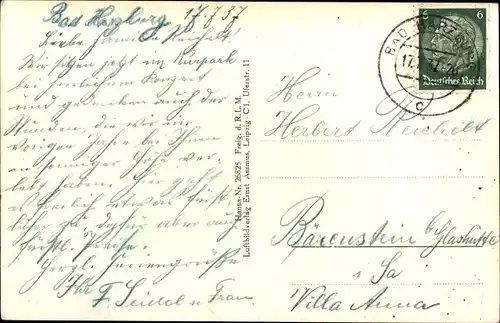 Bad Harzburg 17.7.37
Liebe Familie Reichelt!
Wir sitzen jetzt im Kurpark
bei herrlichem Konzert
und gedenken auch der
Stunden, die wir im
vorigen Jahre bei Ihnen
in sonniger Höhe ver-
lebt haben. Hier geht
es herrlich etwas
zu dafür aber auch
Preise.
Herzl. Feriengrüße
Ihr F. Seidel u Frau
Hansa-Nr. 26825 Freig. d. R.L.M.
Luftbildverlag Ernst Assmus, Leipzig-C1, Uferstr. 11
6 6
Deutsches Reich
BAD HARZBURG
c
Herrn
Herbert Reichelt
Bärenstein b/Glashütte
i Sa
Villa Anna